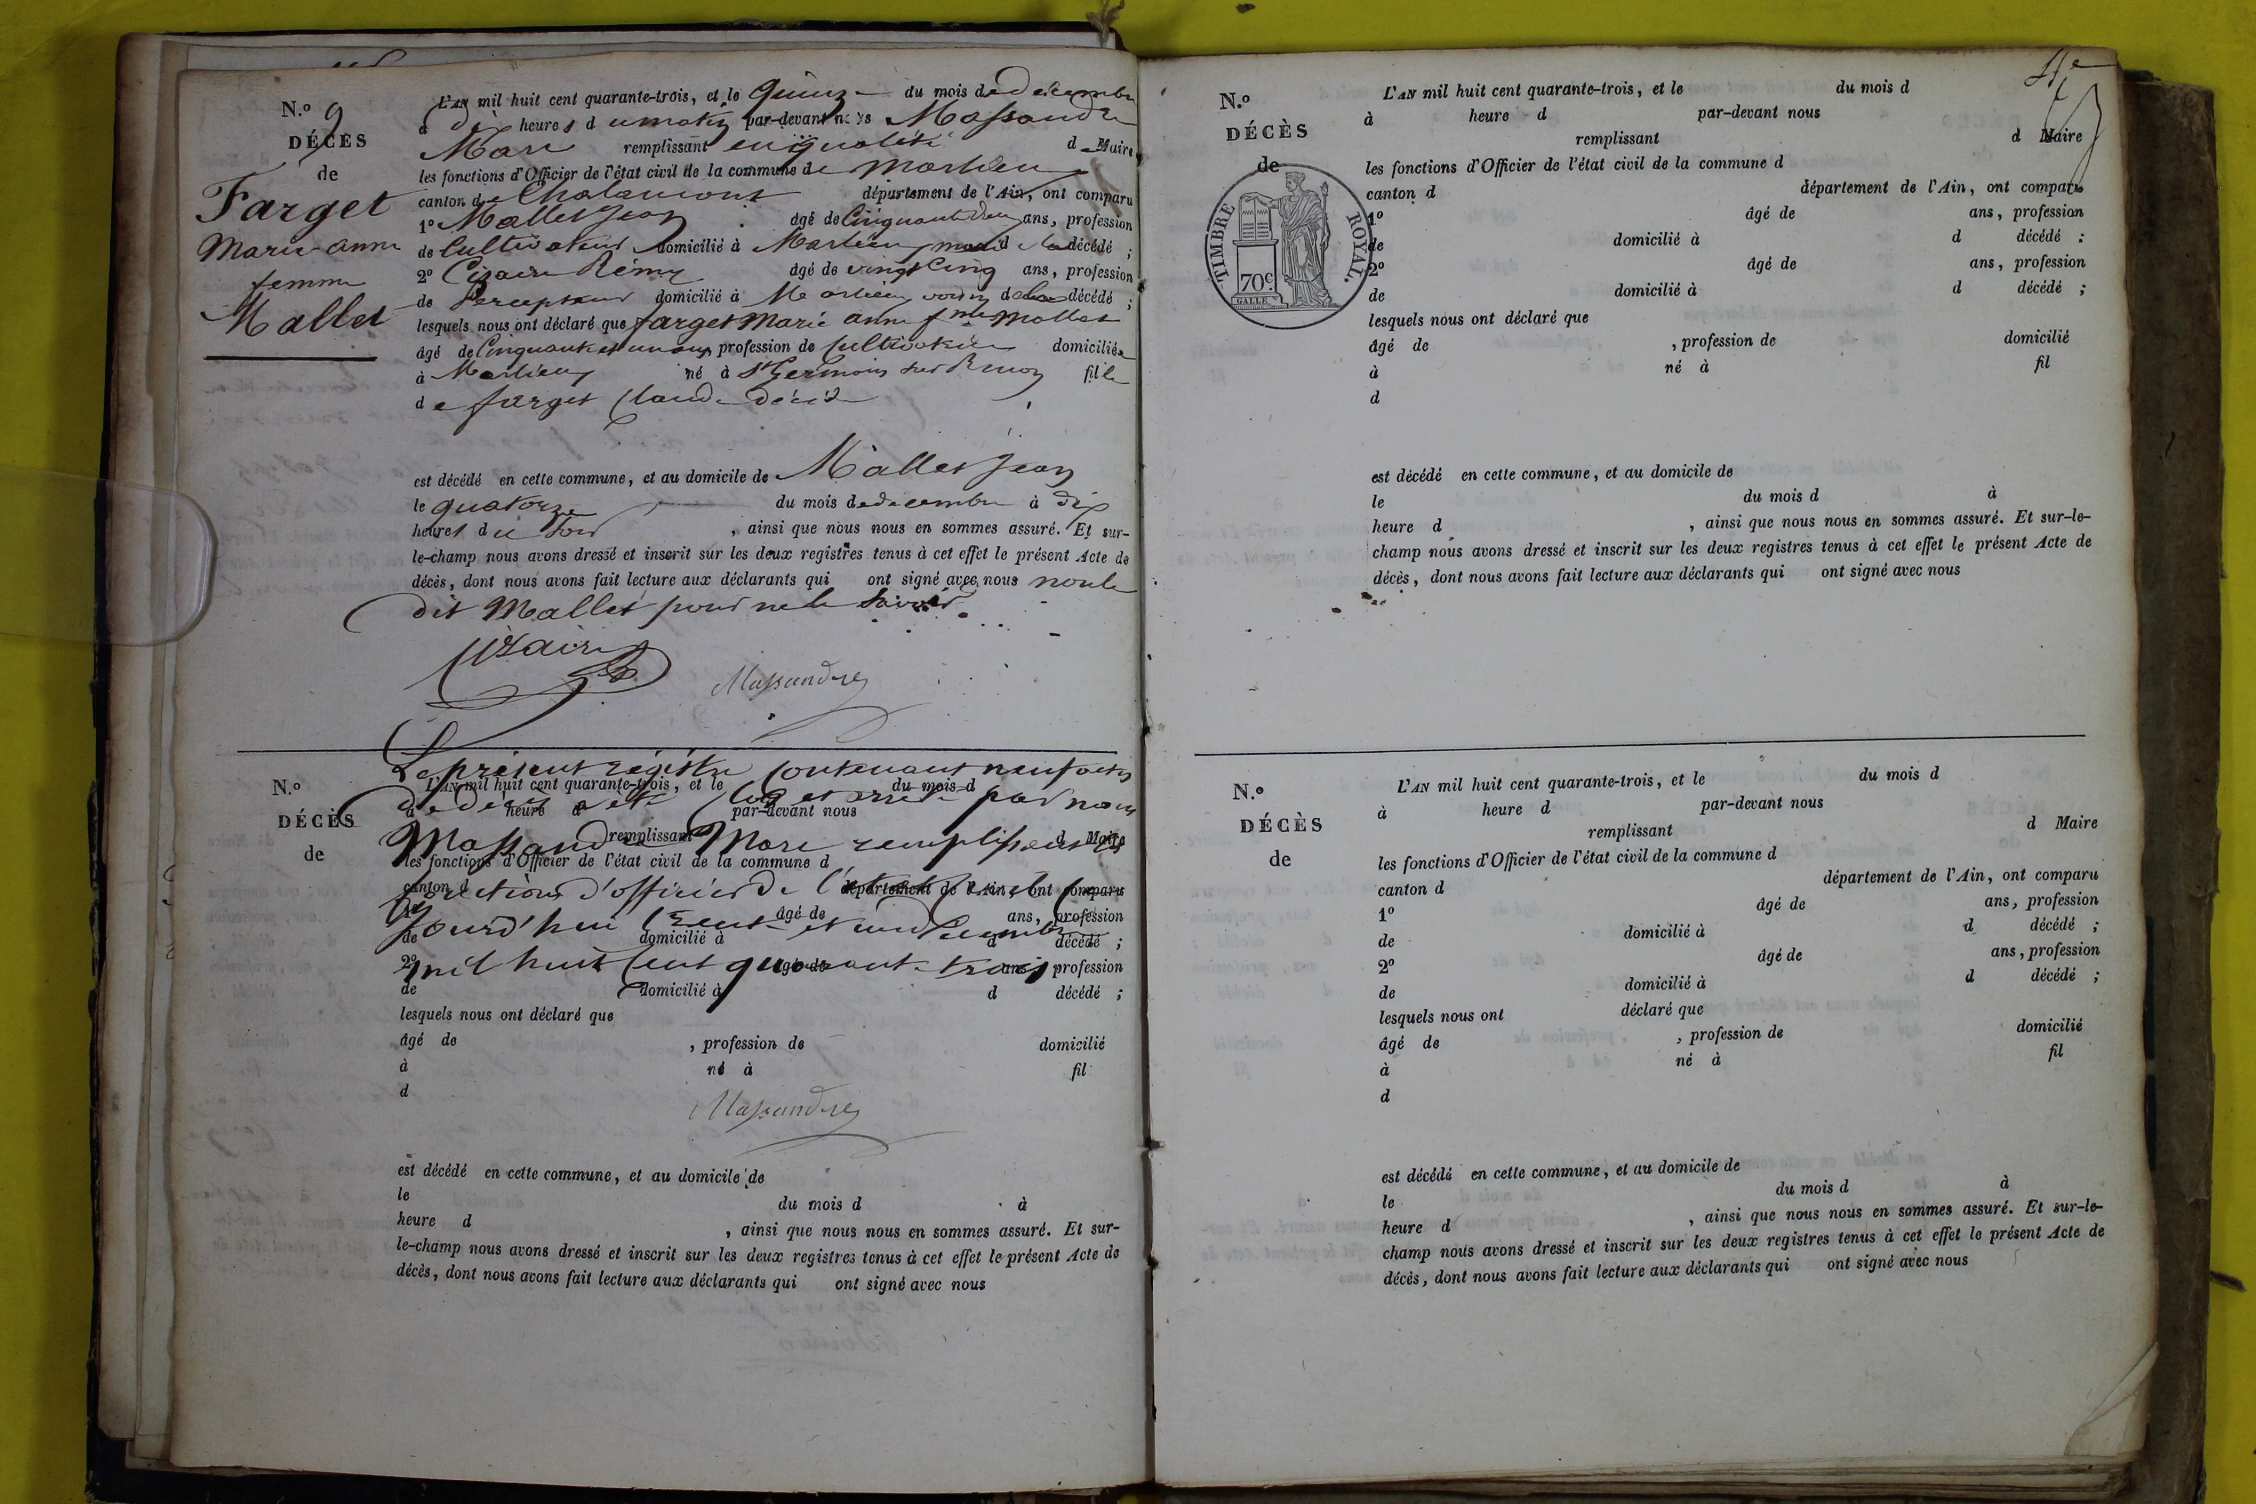 N.o 9
DÉCÈS
de
Farget
Marie-anne
femme
Mallet
L'AN mil huit cent quarante-trois, et le quinze du mois de décembre
à dix heures du matin par-devant nous Massandre
Maire remplissant en qualité de Maire
les fonctions d'Officier de l'état civil de la commune de Marlieux
canton de Chalamont département de l'Ain, ont comparu
1o Mallet Jean âgé de Cinquante deux ans, profession
de Cultivateur domicilié à Marlieux mari de la décédé ;
2o Cizaire Rémy âgé de vingt Cinq ans, profession
de Percepteur domicilié à Marlieux voisin de la décédé ;
lesquels nous ont déclaré que farget Marie anne fme Mallet
âgé de Cinquante et un ans, profession de Cultivatrice domiciliée
à Marlieux né à St Germain sur Renon fille
de farget Claude décédé
est décédé en cette commune, et au domicile de Mallet Jean
le quatorze du mois de decembre à dix
heures du soir , ainsi que nous nous en sommes assuré. Et sur-
le-champ nous avons dressé et inscrit sur les deux registres tenus à cet effet le présent Acte de
décès, dont nous avons fait lecture aux déclarants qui ont signé avec nous non le
dit Mallet pour ne le savoir
Cizaire
Massandre
N.o
DÉCÈS
de
Le présent régistre contenant neuf actes
L'AN mil huit cent quarante-trois, et le du mois d
de décès a été clos et arrêté par nous
à heure d par-devant nous
Massandre Maire remplissant les
remplissant d Maire
les fonctions d'Officier de l'état civil de la commune d
fonctions d'officier de l'état civil ce
canton d département de l'Ain, ont comparu
1o âgé de ans, profession
jourd'hui trente et un décembre
de domicilié à d décédé ;
mil huit cent quarante-trois
2o âgé de ans, profession
de domicilié à d décédé ;
lesquels nous ont déclaré que
âgé de , profession de domicilié
à né à fil
d
Massandre
est décédé en cette commune, et au domicile de
le du mois d à
heure d , ainsi que nous nous en sommes assuré. Et sur-
le-champ nous avons dressé et inscrit sur les deux registres tenus à cet effet le présent Acte de
décès, dont nous avons fait lecture aux déclarants qui ont signé avec nous
N.o
DÉCÈS
de
TIMBRE ROYAL.
70c
GALLE
L'AN mil huit cent quarante-trois, et le du mois d
à heure d par-devant nous
remplissant d Maire
les fonctions d'Officier de l'état civil de la commune d
canton d département de l'Ain, ont comparu
1o âgé de ans, profession
de domicilié à d décédé ;
2o âgé de ans, profession
de domicilié à d décédé ;
lesquels nous ont déclaré que
âgé de , profession de domicilié
à né à fil
d
est décédé en cette commune, et au domicile de
le du mois d à
heure d , ainsi que nous nous en sommes assuré. Et sur-le-
champ nous avons dressé et inscrit sur les deux registres tenus à cet effet le présent Acte de
décès, dont nous avons fait lecture aux déclarants qui ont signé avec nous
N.o
DÉCÈS
de
L'AN mil huit cent quarante-trois, et le du mois d
à heure d par-devant nous
remplissant d Maire
les fonctions d'Officier de l'état civil de la commune d
canton d département de l'Ain, ont comparu
1o âgé de ans, profession
de domicilié à d décédé ;
2o âgé de ans, profession
de domicilié à d décédé ;
lesquels nous ont déclaré que
âgé de , profession de domicilié
à né à fil
d
est décédé en cette commune, et au domicile de
le du mois d à
heure d , ainsi que nous nous en sommes assuré. Et sur-le-
champ nous avons dressé et inscrit sur les deux registres tenus à cet effet le présent Acte de
décès, dont nous avons fait lecture aux déclarants qui ont signé avec nous